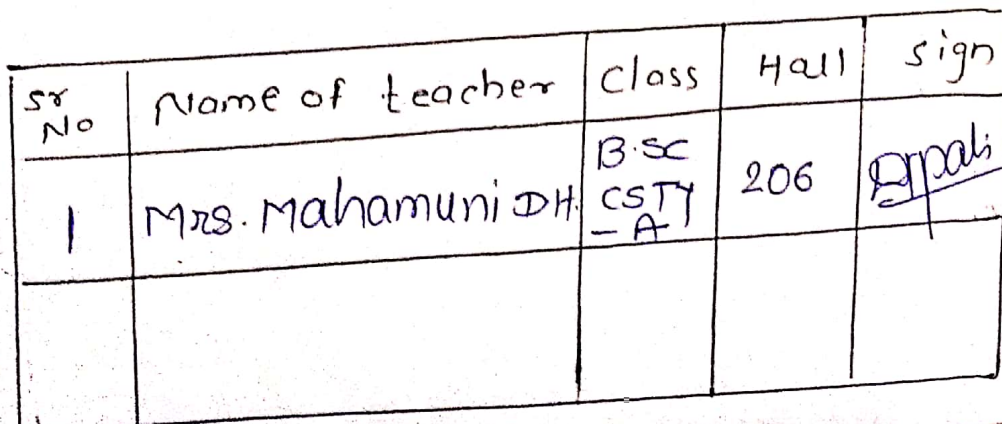 Sr No Name of teacher Class Hall sign
1 Mrs. Mahamuni DH. B.SC CSTY - A 206 Dipali